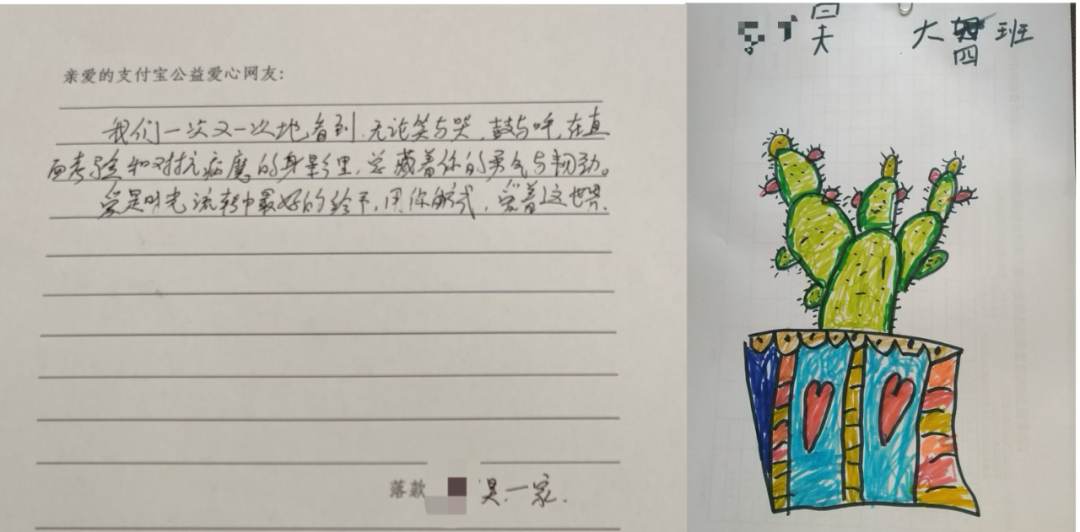 亲爱的支付宝公益爱心网友:
我们一次又一次地看到,无论笑与哭,鼓与呼,在直
面考验和对抗病魔的身影里,总藏着你的勇气与韧劲。
爱是时光流转中最好的给予,用你方式,爱着这世界.
落款 一家.
大 四 班